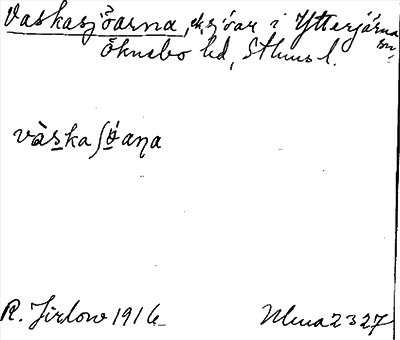 Vaskasjöarna, sjöar i Ytterjärna sn,
Öknebo hd, Sthms l.
väska
R. Jirlow 1916